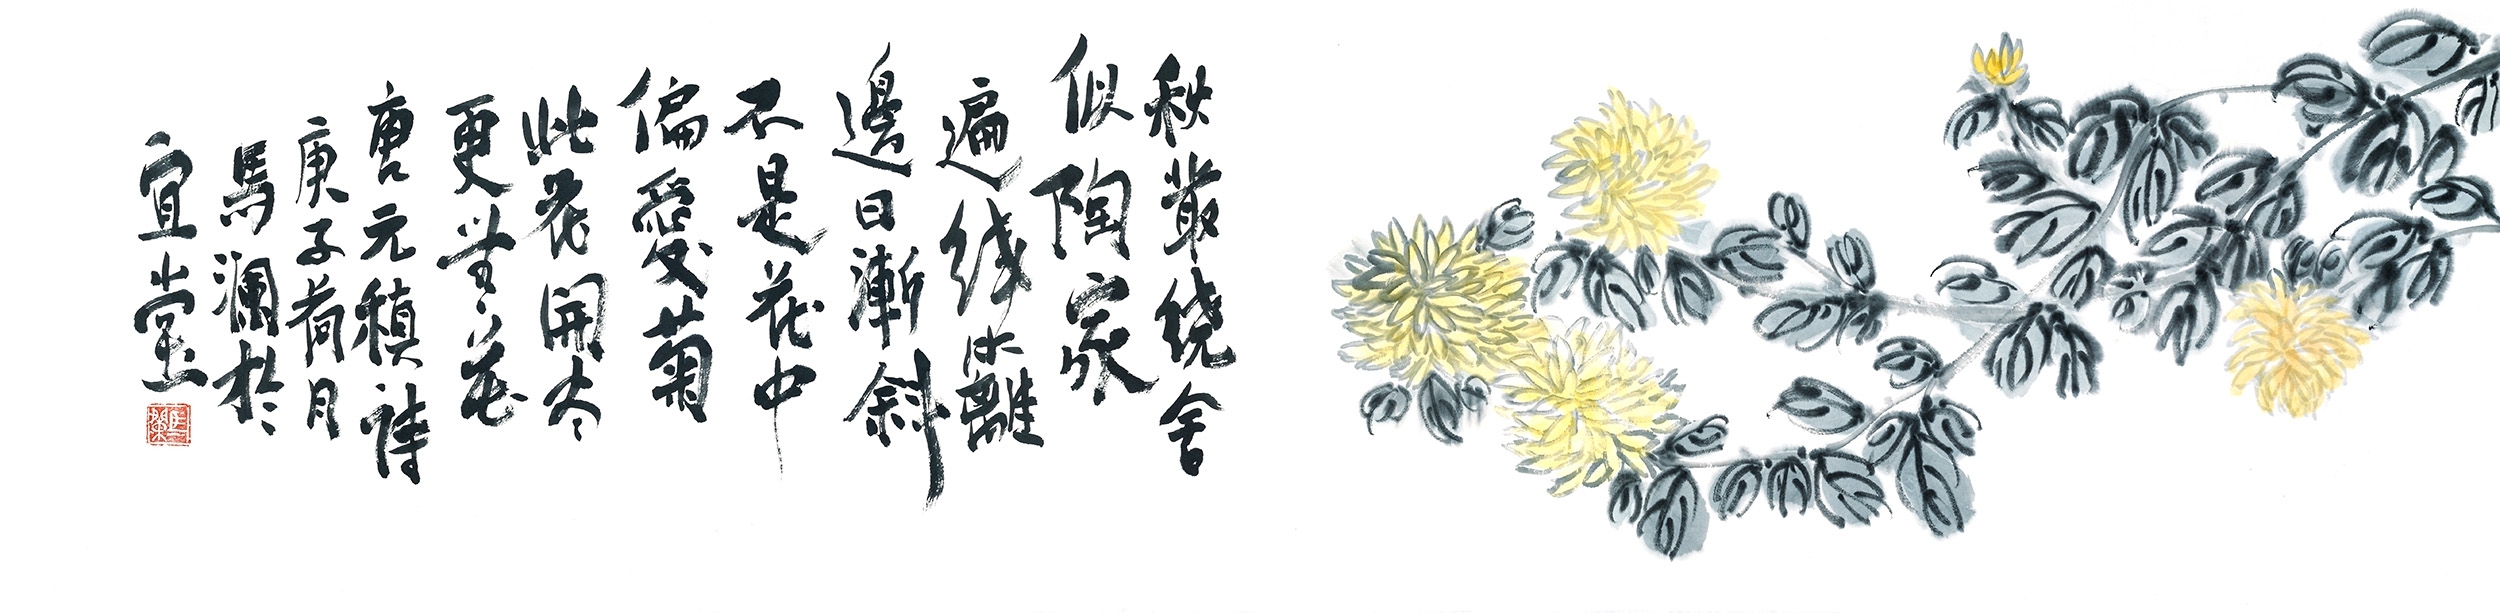 秋叢绕舍
似陶家
遍绕籬
邊日漸斜
不是花中
偏愛菊
此花開尽
更無花
唐元稹詩
庚子荷月
馬瀾於
宜堂